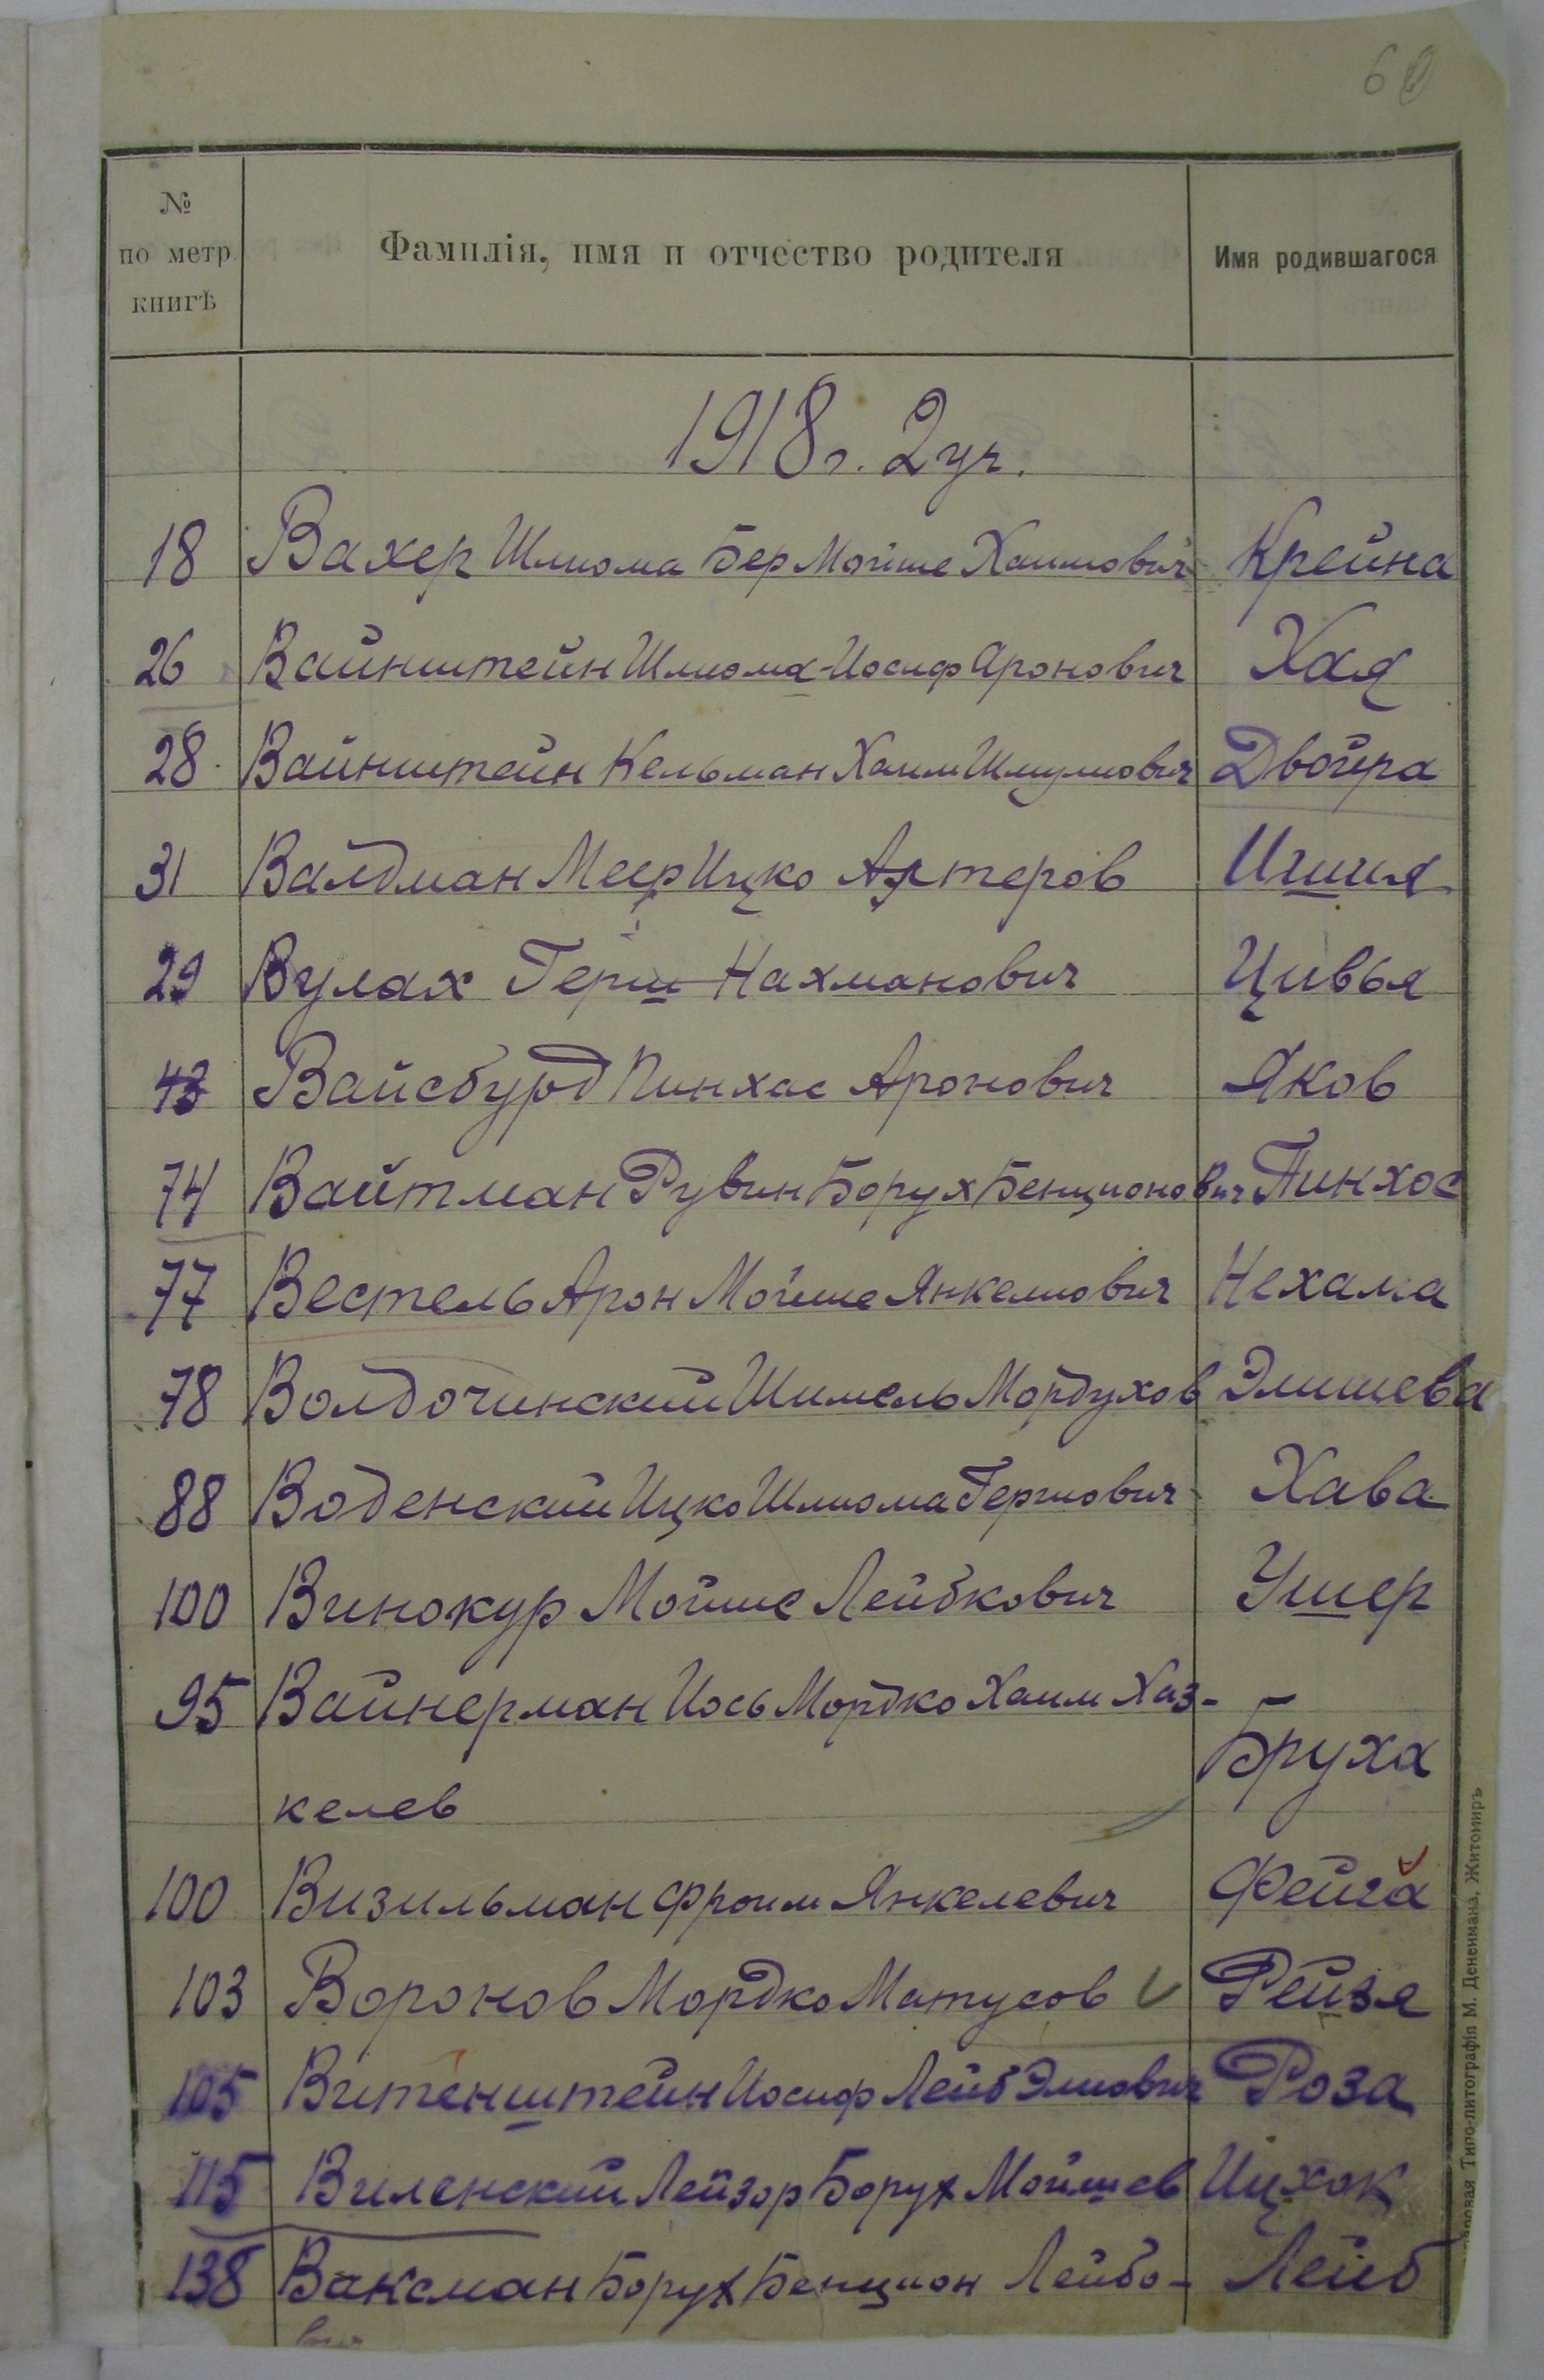 60
№
по метр.
книгѣ
Фамилія, имя и отчество родителя
Имя родившагося
1918 г. 2 уч.
18 Вахер Шлиома Бер Мойше Хаимович Крейна
26 Вайнштейн Шлиома-Иосиф Аронович Хая
28 Вайнштейн Кельман Хаим Шмулиович Двойра
31 Валдман Меер Ицко Алтеров Ишия
29 Вулах Герш Нахманович Цивья
43 Вайсбурд Пинхас Аронович Яков
74 Вайтман Рувин Борух Бенционович Пинхос
77 Вестель Арон Мойше Янкелиович Нехама
78 Волдочинский Шимель Мордухов Элишева
88 Воденский Ицко Шлиома Гершович Хава
100 Винокур Мойше Лейбкович Ушер
95 Вайнерман Иось Мордко Хаим Хаз-
келев Бруха
100 Визильман Фроим Янкелевич Фейга
103 Воронов Мордко Матусов Рейзя
105 Витенштейн Иосиф Лейб Элиович Роза
115 Виленский Лейзор Борух Мойшев Ицхок
138 Ваксман Борух Бенцион Лейбо- Лейб
вич
Типо-литографія М. Дененмана, Житомиръ